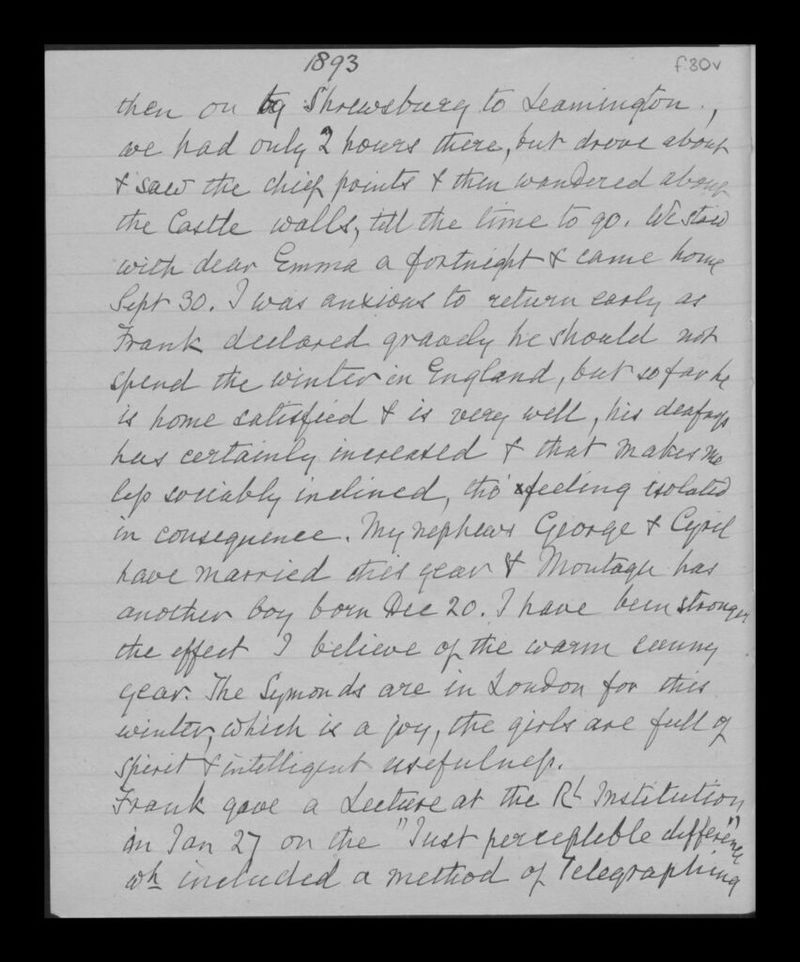 1893
f30v
then on by Shrewsbury to Leamington.,
we had only 2 hours there, but drove about
& saw the chief points & then wandered about
the Castle walls, till the time to go. We staid
with dear Emma a fortnight & came home
Sept 30. I was anxious to return early as
Frank declared gravely he should not
spend the winter in England, but so far he
is home satisfied & is very well, his deafness
has certainly increased & that makes me
less sociably inclined, tho' feeling isolated
in consequence. My nephews George & Cyril
have married this year & Montagu has
another boy born Dec 20. I have been stronger
the effect I believe of the warm sunny
year. The Symonds are in London for this
winter, which is a joy, the girls are full of
spirit & intelligent usefulness.
Frank gave a Lecture at the Rl Institution
in Jan 27 on the "Just perceptible difference"
wh included a method of Telegraphing